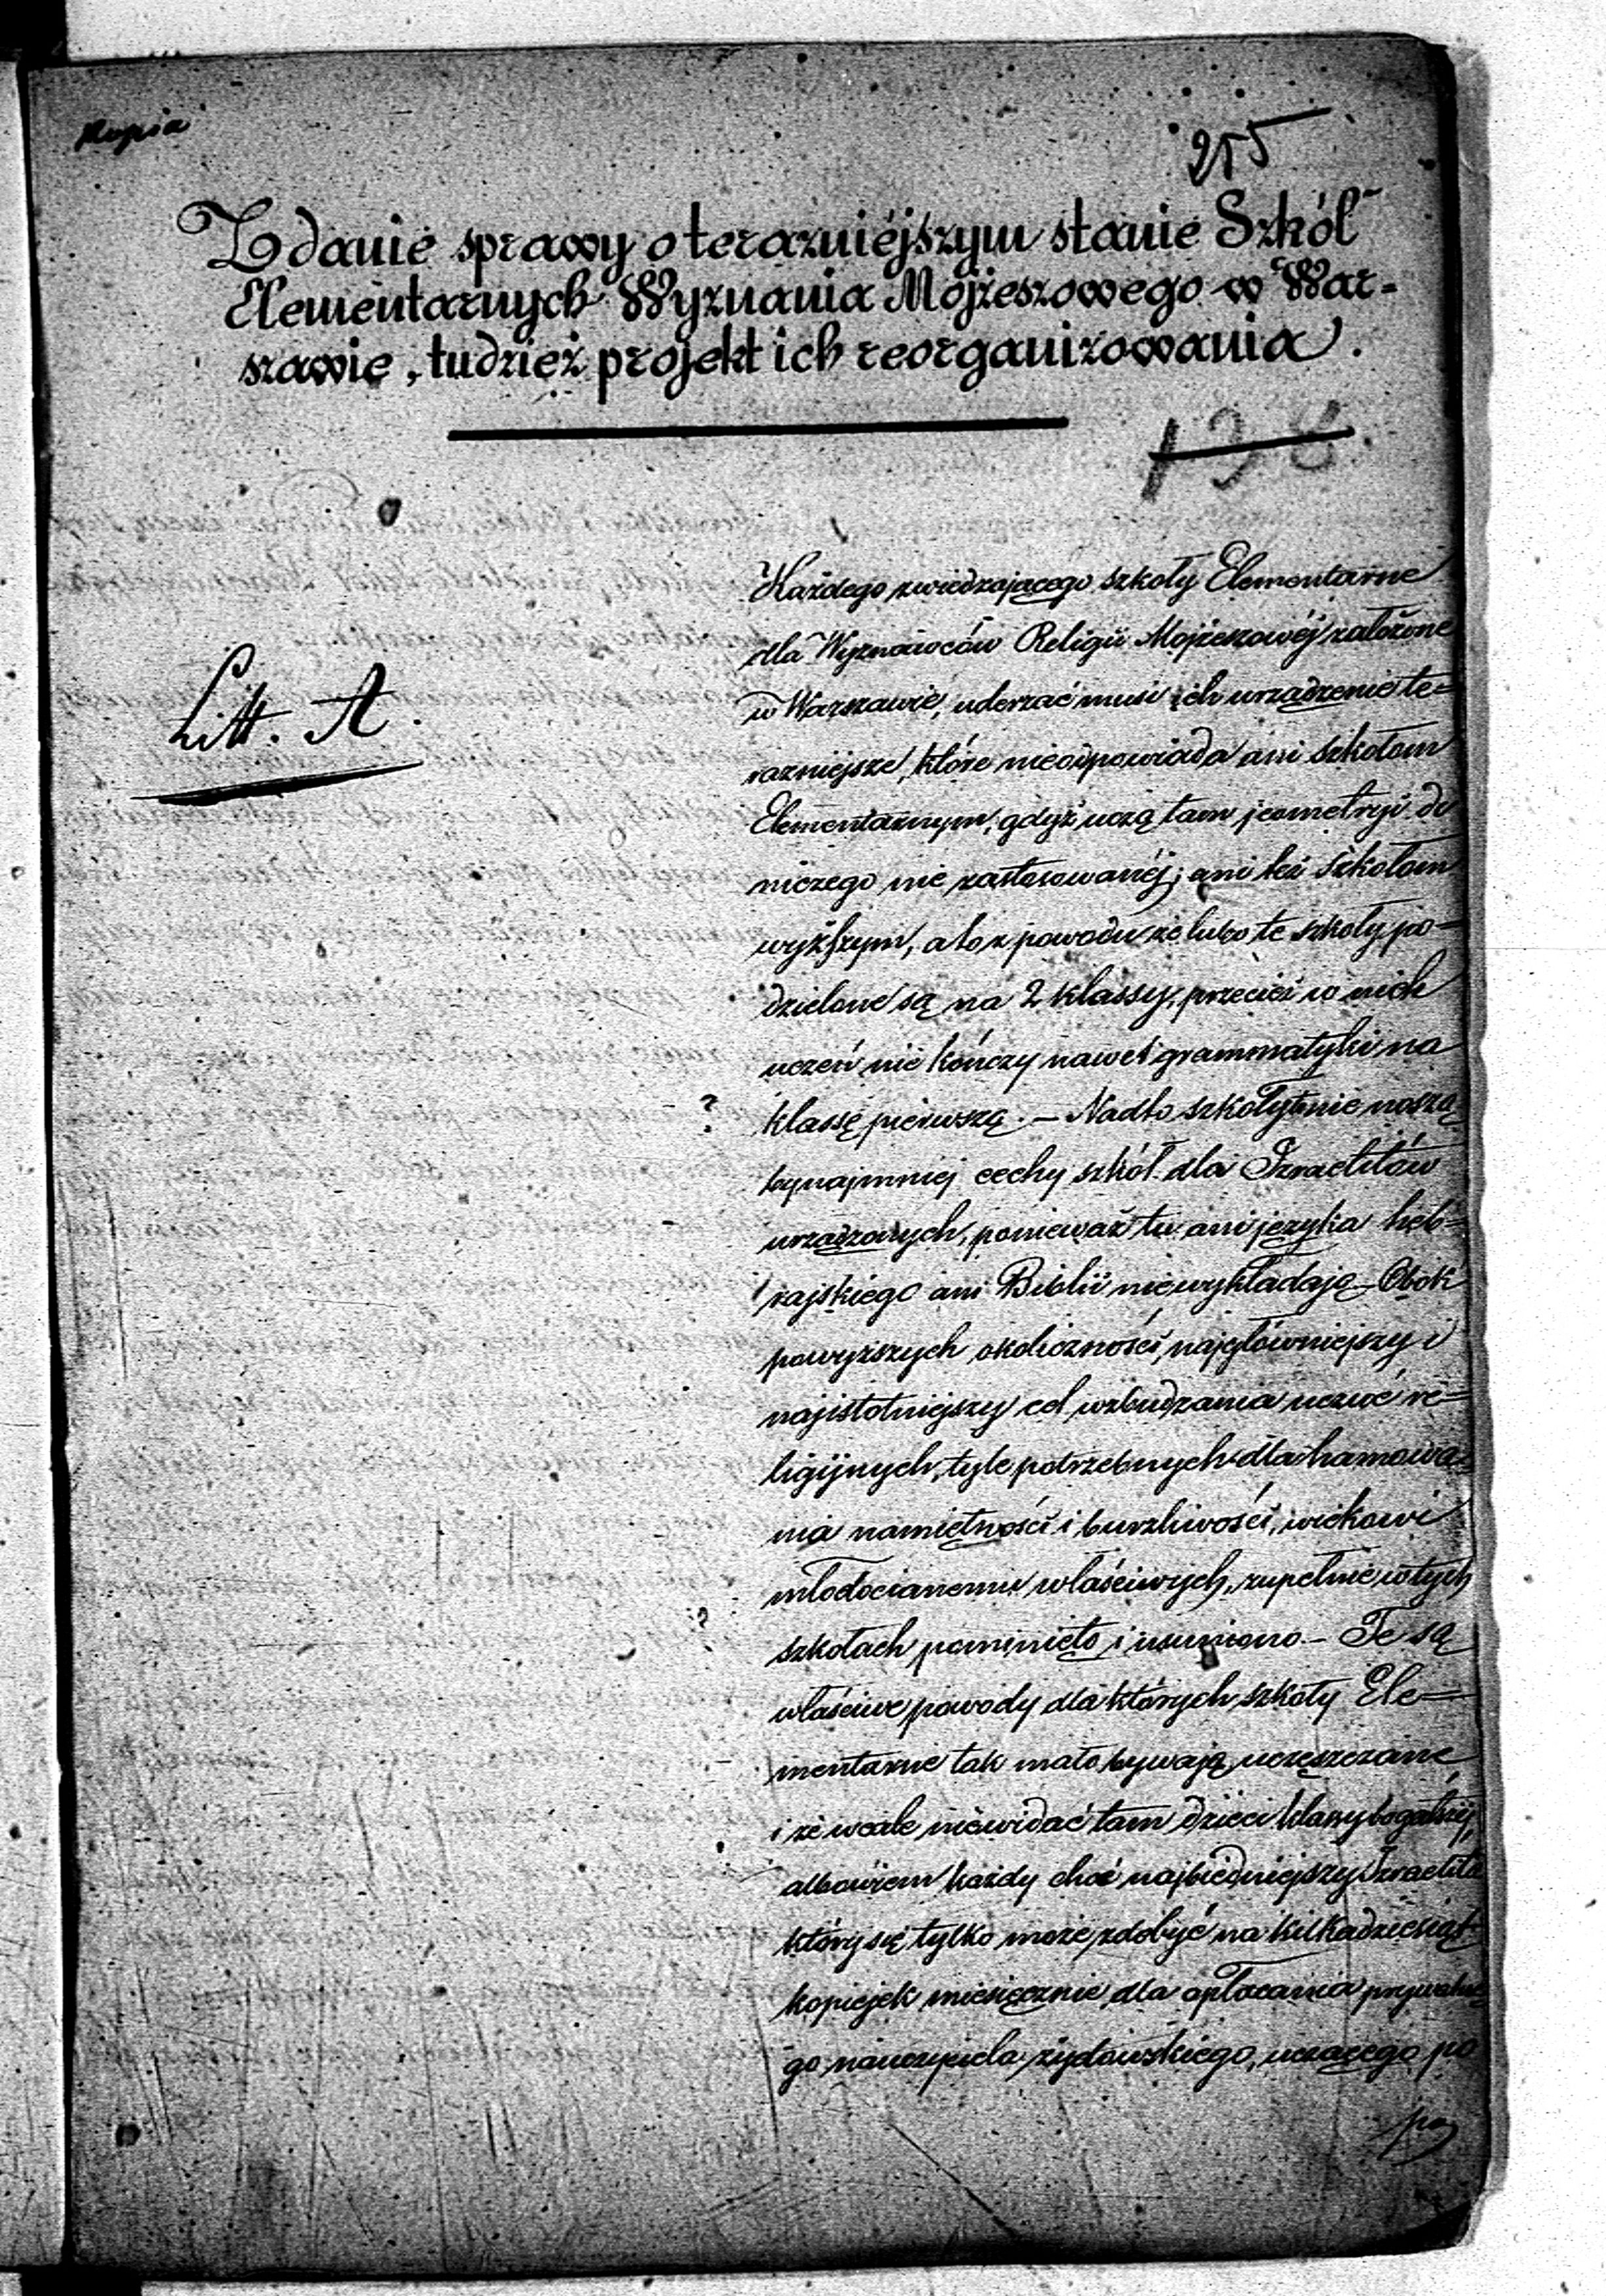 Kopia
255
Zdanie sprawy o teraźniéjszym stanie Szkół
Elementarnych Wyznania Mojżeszowego w War-
szawie, tudzież projekt ich reorganizowania.
138.
Każdego zwiedzającego szkoły Elementarne
dla Wyznawców Religii Mojżeszowéj założone
w Warszawie, uderzać musi ich urządzenie te-
Litt. A.
raźniejsze, które nieodpowiada ani szkołom
Elementarnym, gdyż uczą tam jeometryi do
niczego nie zastosowanéj; ani też szkołom
wyższym, a to z powodu że lubo te szkoły po-
dzielone są na 2 klassy, przecież w nich
uczeń nie kończy nawet grammatyki na
? klassę pierwszą. – Nadto szkoły te nie noszą
bynajmniej cechy szkół dla Izraelitów
urządzonych, ponieważ tu ani języka heb-
rajskiego ani Biblii niewykładają – Obok
powyższych okoliczności, najgłówniejszy i
najistotniejszy cel wzbudzania uczuć re-
ligijnych, tyle potrzebnych dla hamowa-
nia namiętności i burzliwości, wiekowi
młodocianemu właściwych, zupełnie w tych
? szkołach pominięto i usunięno – Te są
właściwe powody dla których szkoły Ele-
mentarne tak mało bywają uczęszczane
i że wcale niewidać tam dzieci klassy bogatszéj,
albowiem każdy choć najbiedniejszy Izraelita
który się tylko może zdobyć na kilkadziesiąt
kopiejek miesięcznie dla opłacania prywatne
go nauczyciela żydowskiego, uczącego po